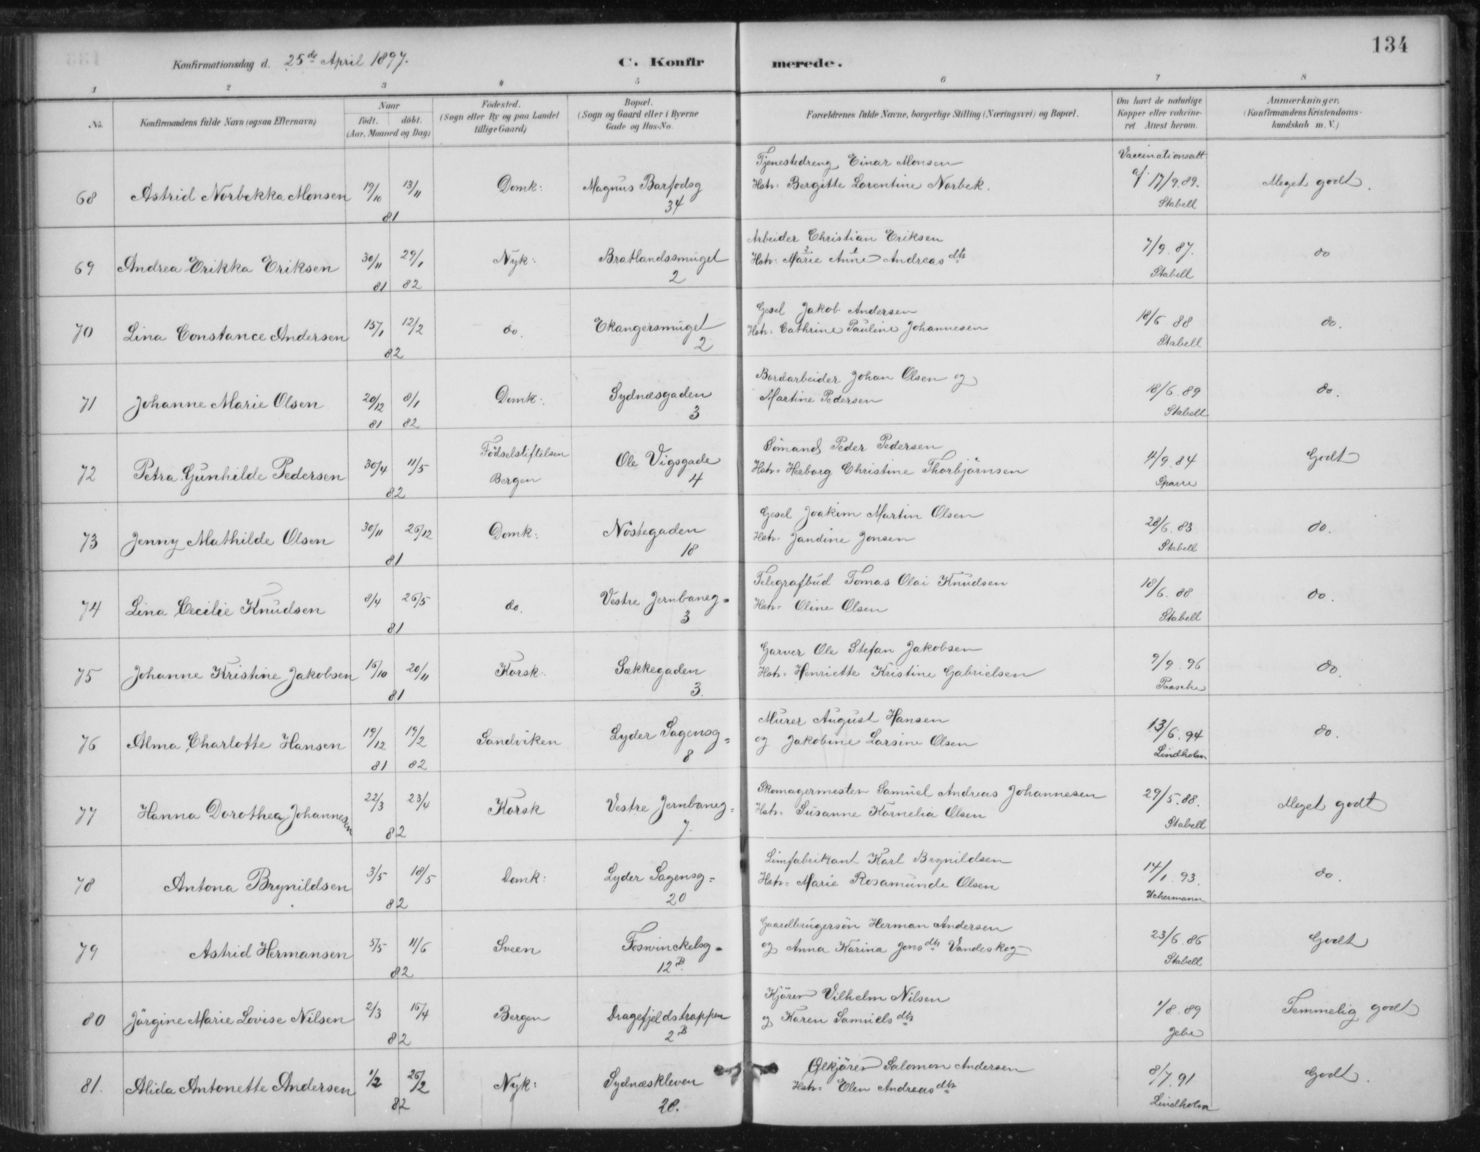 134
Konfirmationsdag d. 25de April 1897.
C. Konfirmerede.
1 2 3 4 5 6 7 8
No. Konfirmandens fulde Navn (ogsaa Efternavn) Naar Født. døbt. (Aar, Maaned og Dag) Fødested. (Sogn eller By og paa Landet tillige Gaard) Bopæl. (Sogn og Gaard eller i Byerne Gade og Hus-No. Forældrenes fulde Navne, borgerlige Stilling (Næringsvei) og Bopæl. Om havt de naturlige Kopper eller vaccineret Attest herom. Anmærkninger. (Konfirmandens Kristendomskundskab m. V.)
68 Astrid Norbekka Monsen 19/10 13/11 81 Domk: Magnus Barfodsg 34 Tjenestedreng Einar Monsen
Hstr. Bergitte Lorentine Norbek. Vaccinationsatt af 17/9.89. Stabell Meget godt.
69 Andrea Erikka Eriksen 30/11 81 29/1 82 Nyk: Bratlandssmuget 2 Arbeider Christian Eriksen
Hstr: Marie Anne Andreasdtr 7/9.87. Stabell do
70 Lina Constance Andersen 15/1 12/2 82 do. Ekangersmuget 2 Gesel Jakob Andersen
Hstr: Cathrine Pauline Johannesen 18/6 88 Stabell do.
71 Johanne Marie Olsen 20/12 81 8/1 82 Domk: Sydnæsgaden 3 Bordarbeider Johan Olsen og
Martine Pedersen 18/6.89 Stabell do.
72 Petra Gunhilde Pedersen 30/4 11/5 82 Fødselstiftelsen Bergen Ole Vigsgade 4 Sømand Peder Pedersen
Hstr. Herborg Christine Thorbjørnsen 11/9.84 Sparre Godt
73 Jenny Mathilde Olsen 30/11 26/12 81 Domk: Nøstegaden 18 Gesel Joakim Martin Olsen
Hstr. Jandine Jonsen 28/6.83 Stabell do.
74 Lina Cecilie Knudsen 8/4 26/5 81 do. Vestre Jernbaneg= 3 Telegrafbud Tomas Olai Knudsen
Hstr: Oline Olsen 18/6.88 Stabell do.
75 Johanne Kristine Jakobsen 16/10 20/11 81 Korsk. Sækkegaden 3. Garver Ole Stefan Jakobsen
Hstr. Henriette Kristine Gabrielsen 9/9.96 Paasche do.
76 Alma Charlotte Hansen 19/12 81 19/2 82 Sandviken Lyder Sagensg= 8 Murer August Hansen
og Jakobine Larsine Olsen 13/6.94 Lindholm do.
77 Hanna Dorothea Johannesen 22/3 23/4 82 Korsk Vestre Jernbaneg= 7. Skomagermester Samuel Andreas Johannesen
Hstr. Susanne Kornelia Olsen 29/5.88. Stabell Meget godt
78 Antona Brynildsen 3/5 18/5 82 Domk: Lyder Sagensg= 20 Limfabrikant Karl Brynildsen
Hstr. Marie Rosamunde Olsen 14/1.93. Uchermann do.
79 Astrid Hermansen 5/5 11/6 82 Sveen Foswinckelsg= 12B. Gaardbrugersøn Herman Andersen
og Anna Karina Jonsdtr Vandeskog 23/6.86 Stabell Godt
80 Jørgine Marie Lovise Nilsen 2/3 16/4 82 Bergen Dragefjeldstrappen 2B Kjører Vilhelm Nilsen
og Karen Samuelsdtr 1/8.89 Jebe Temmelig godt
81. Alida Antonette Andersen 1/2 26/2 82 Nyk: Sydnæskleven 28. Ølkjører Salomon Andersen
Hstr. Elen Andreasdtr 8/7.91 Lindholm Godt.